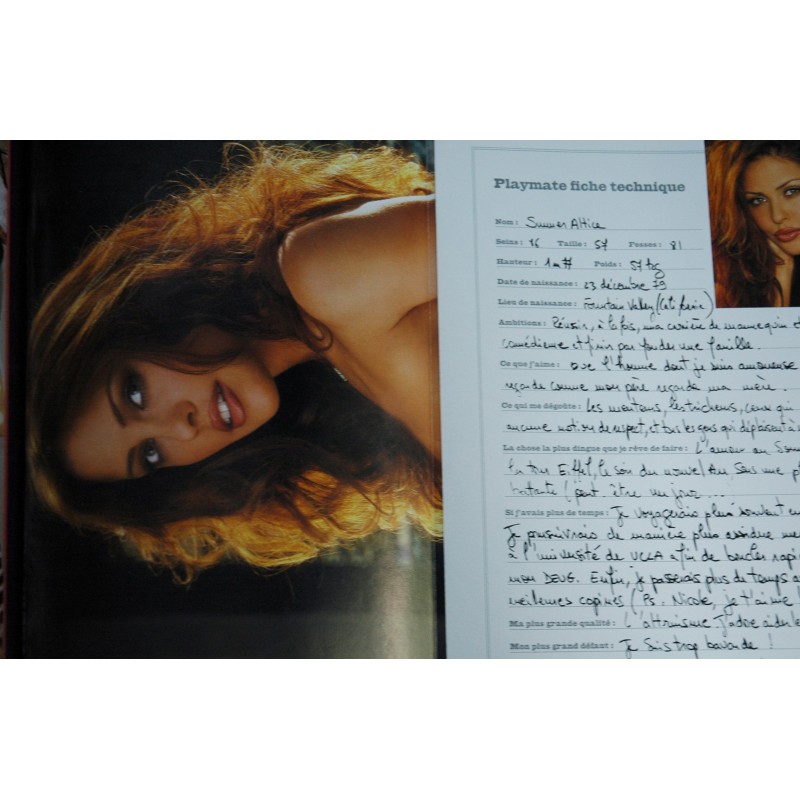 Playmate fiche technique
Nom : Summer Altice
Seins : 86 Taille : 57 Fesses : 81
Hauteur : 1m77 Poids : 57 kg
Date de naissance : 23 décembre 79
Lieu de naissance : Fountain Valley (Californie)
Ambitions : Réussir, à la fois, ma carrière de mannequin et
comédienne et finir par fonder une famille.
Ce que j'aime : Que l'homme dont je suis amoureuse
regarde comme mon père regarde ma mère.
Ce qui me dégoûte : Les menteurs, les tricheurs, ceux qui
aucune notion de respect, et tous les gens qui
La chose la plus dingue que je rêve de faire : L'amour au
la tour Eiffel, le soir du nouvel An, sous une
battante (peut-être un jour...
Si j'avais plus de temps : Je voyagerais plus souvent
Je poursuivrais de manière plus assidue
à l'université de UCLA afin de boucler
mon DEUG. Enfin, je passerais plus de temps
meilleures copines (Ps. Nicole, je t'aime !
Ma plus grande qualité : L'altruisme J'adore aider
Mon plus grand défaut : Je suis trop bavarde !